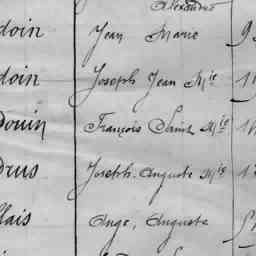 Alexandre
doin Jean Marie 9
doin Joseph Jean Mie 1
Douin François Saint Mie 1
Drus Joseph Auguste Mie 1
llais Ange, Auguste